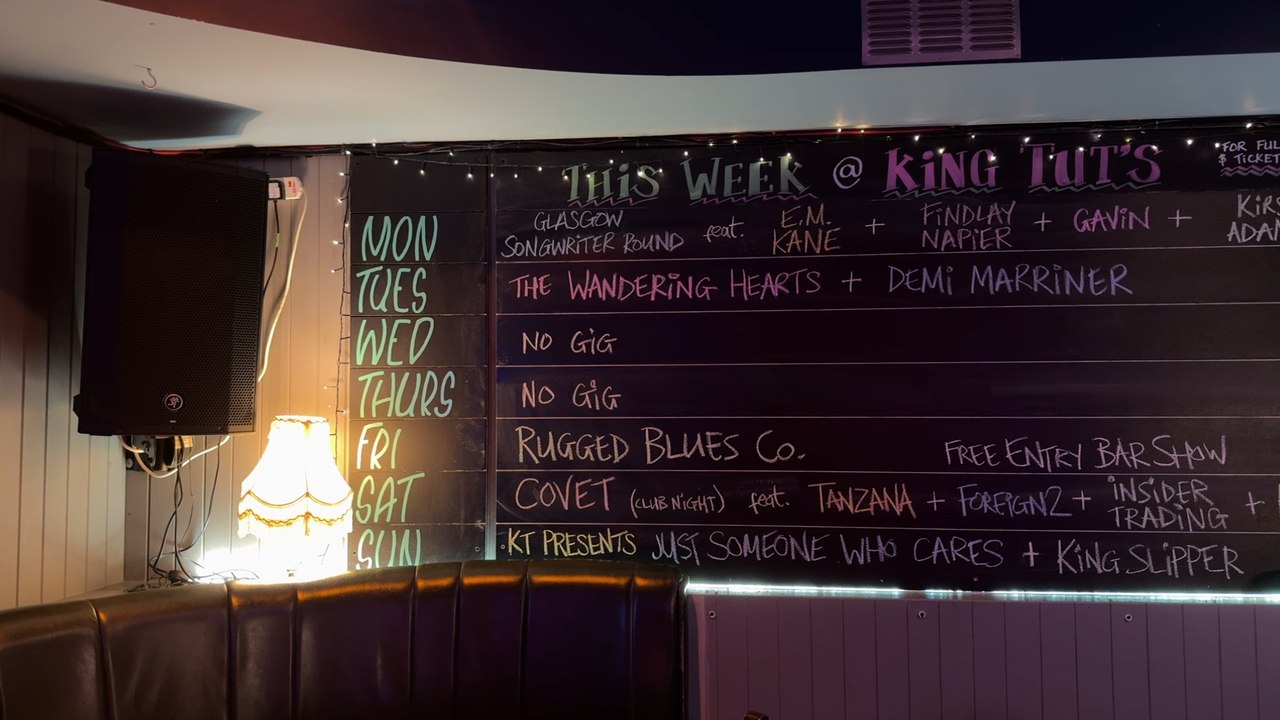 THIS WEEK @ KING TUT'S
FOR FUL
$ TICKET
MON
GLASGOW
SONGWRITER ROUND feat. E.M. KANE + FINDLAY NAPIER + GAVIN +
TUES
THE WANDERING HEARTS + DEMI MARRINER
WED
NO GIG
THURS
NO GIG
FRI
RUGGED BLUES CO. FREE ENTRY BAR SHOW
SAT
COVET (CLUB NIGHT) feat. TANZANA + FOREIGN2 + INSIDER TRADING +
SUN
KT PRESENTS JUST SOMEONE WHO CARES + KING SLIPPER